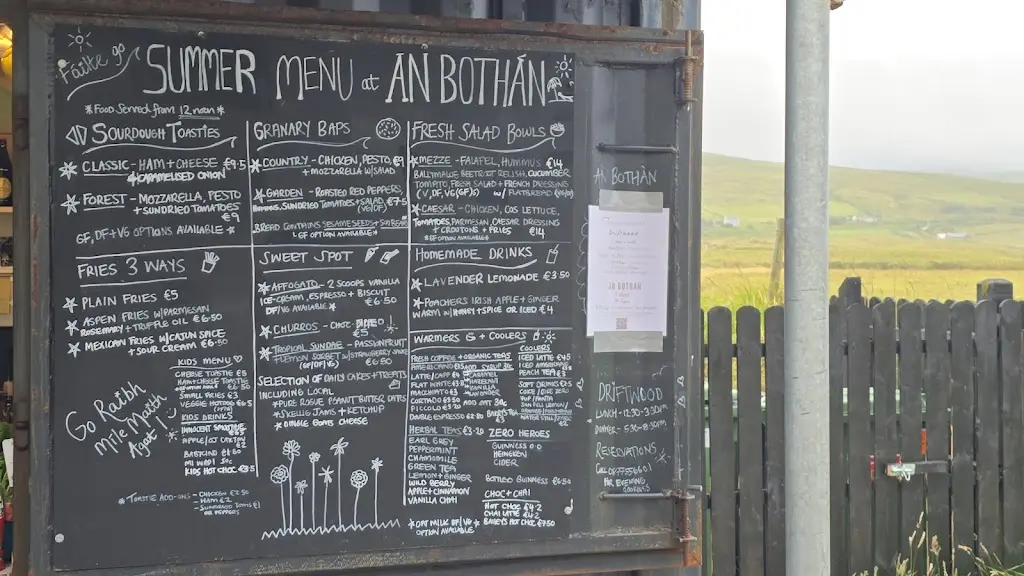 Fáilte go
SUMMER MENU at AN BOTHÁN
*Food Served from 12 noon*
SOURDOUGH TOASTIES
CLASSIC - HAM + CHEESE €9.5
+ CARAMELISED ONION
FOREST - MOZZARELLA, PESTO
+ SUNDRIED TOMATOES
€9
GF, DF + VG OPTIONS AVAILABLE
FRIES 3 WAYS
PLAIN FRIES €5
ASPEN FRIES W/PARMESAN
ROSEMARY + TRUFFLE OIL €6.50
MEXICAN FRIES W/CAJUN SPICE
+ SOUR CREAM €6.50
KIDS MENU
CHEESE TOASTIE €5
HAM + CHEESE TOASTIE
SMALL FRIES €3
VEGGIE HOTDOG €6.5
KIDS DRINKS
INNOCENT SMOOTHIE
APPLE/
KIDS HOT CHOC
Go Raibh
Míle Maith
Agat!
*TOASTIE ADD-ONS - CHICKEN €2.50
- HAM €2
- SUNDRIED TOMS €1
OR PEPPERS
GRANARY BAPS
COUNTRY - CHICKEN, PESTO, €9
+ MOZZARELLA W/SALAD
GARDEN - ROASTED RED PEPPERS,
HUMMUS, SUNDRIED TOMATOES + SALAD €7.5
(VG/DF)
BREAD CONTAINS SESAME SEEDS + SOYBEAN
*GF OPTION AVAILABLE*
SWEET SPOT
AFFOGATO - 2 SCOOPS VANILLA
ICE-CREAM, ESPRESSO + BISCUIT
DF/VG AVAILABLE* €6.50
CHURROS - CHOC DIPPED
€5
TROPICAL SUNDAE - PASSIONFRUIT
+ LEMON SORBET W/STRAWBERRY SAUCE
(GF/DF/VG) €6.50
SELECTION OF DAILY CAKES + TREATS
INCLUDING LOCAL
* SPICE ROGUE PEANUT BUTTER, DATES
* SKELLIG JAMS + KETCHUP
* DINGLE GOATS CHEESE
FRESH SALAD BOWLS
MEZZE - FALAFEL, HUMMUS, €14
BALLYMALOE BEETROOT RELISH, CUCUMBER
TOMATO, FRESH SALAD + FRENCH DRESSING
(V, DF, VG(GF)S) W/ FLATBREAD
CAESAR - CHICKEN, COS LETTUCE,
TOMATOES, PARMESAN, CAESAR DRESSING
+ CROUTONS + FRIES €14
*GF OPTION AVAILABLE*
HOMEMADE DRINKS
LAVENDER LEMONADE €3.50
POACHERS IRISH APPLE + GINGER
WARM W/HONEY + SPICE OR ICED €4
WARMERS & COOLERS
FRESH COFFEE + ORGANIC TEAS
AMERICANO
LATTE/
FLAT WHITE
MACCHIATO
PICCOLO
DOUBLE ESPRESSO €2.80
ADD SYRUP
CARAMEL
HAZELNUT
VANILLA
LAVENDER
ADD OAT 30c
COOLERS
ICED LATTE €4.5
ICED AMERICANO
PEACH TEA
SOFT DRINKS
7UP/FANTA
SAN PELL LEMON/
HERBAL TEAS €3.20
EARL GREY
PEPPERMINT
CHAMOMILE
GREEN TEA
LEMON + GINGER
WILD BERRY
APPLE + CINNAMON
VANILLA CHAI
ZERO HEROES
GUINNESS 0.0
HEINEKEN
CIDER
BOTTLED GUINNESS €6.50
CHOC + CHAI
HOT CHOC €4.2
CHAI LATTE €4.2
BAILEYS HOT CHOC €7.50
*OAT MILK DF/VG*
OPTION AVAILABLE
AN BOTHÁN
AN BOTHÁN
DRIFTWOOD
LUNCH - 12.30-3.30pm
DINNER - 5.30-8.30pm
RESERVATIONS
CALL
FOR EVENING